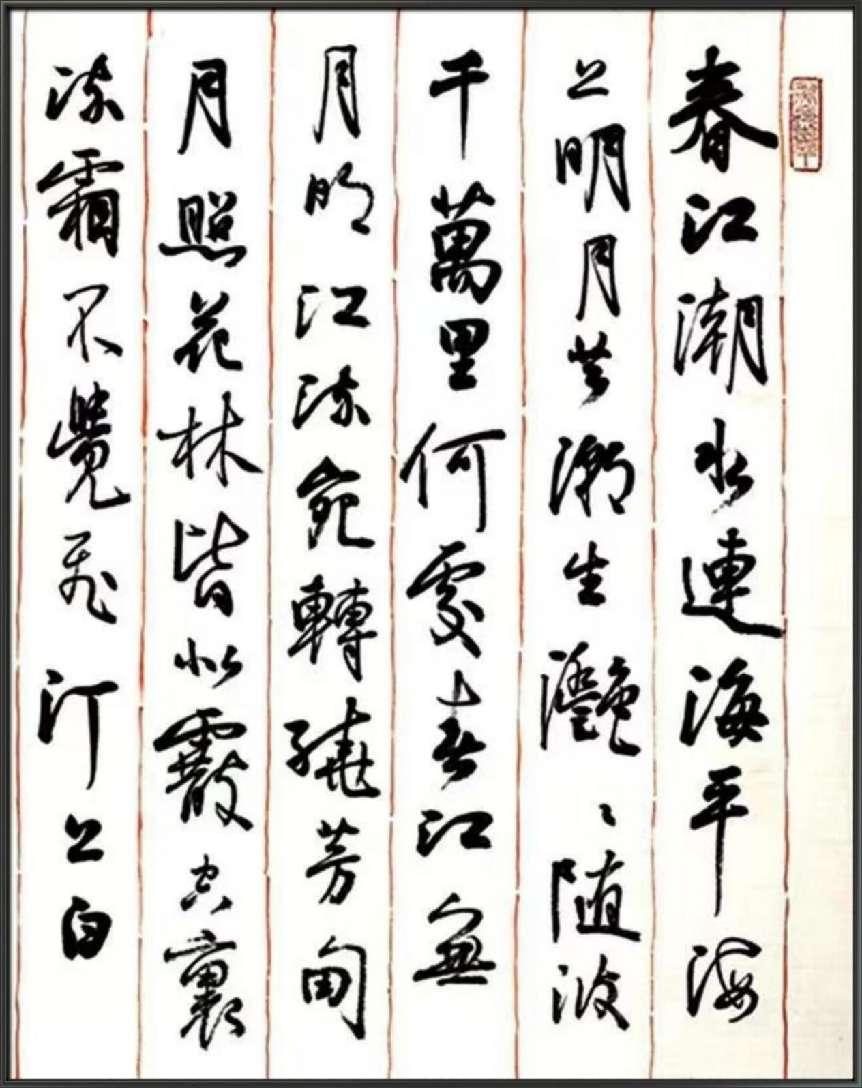 春江潮水連海平海
上明月共潮生灧〻随波
千萬里何處春江無
月明江流宛轉繞芳甸
月照花林皆似霰空裏
流霜不覺飛汀上白